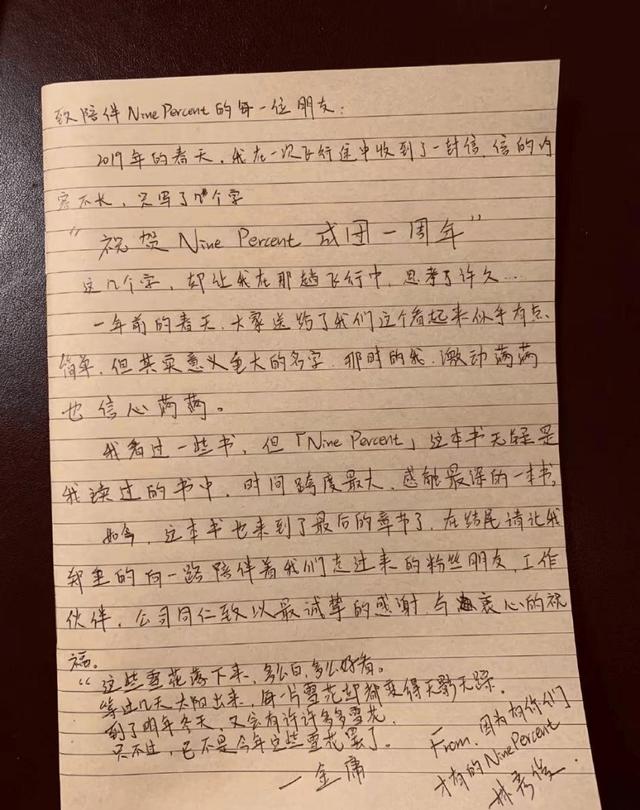 致陪伴Nine Percent的每一位朋友：
2019年的春天，我在一次飞行途中收到了一封信，信的内
容不长，只写了几个字
“祝贺Nine Percent成团一周年”
这几个字，却让我在那趟飞行中，思考了许久...
一年前的春天，大家送给了我们这个看起来似乎有点
简单，但其实意义重大的名字，那时的我，激动满满
也信心满满。
我看过一些书，但「Nine Percent」这本书无疑是
我读过的书中，时间跨度最大，感触最深的一本书，
如今，这本书也来到了最后的章节了，在结尾请让我
郑重的向一路陪伴着我们走过来的粉丝朋友，工作
伙伴，公司同仁致以最诚挚的感谢，与衷心的祝
福。
“这些雪花落下来，多么白，多么好看。
等过几天太阳出来，每一片雪花却都变得无影无踪，
到了明年冬天，又会有许许多多雪花，
只不过，已不是今年这些雪花罢了。
—金庸
From. 因为有你们
才有的Nine Percent
林彦俊.